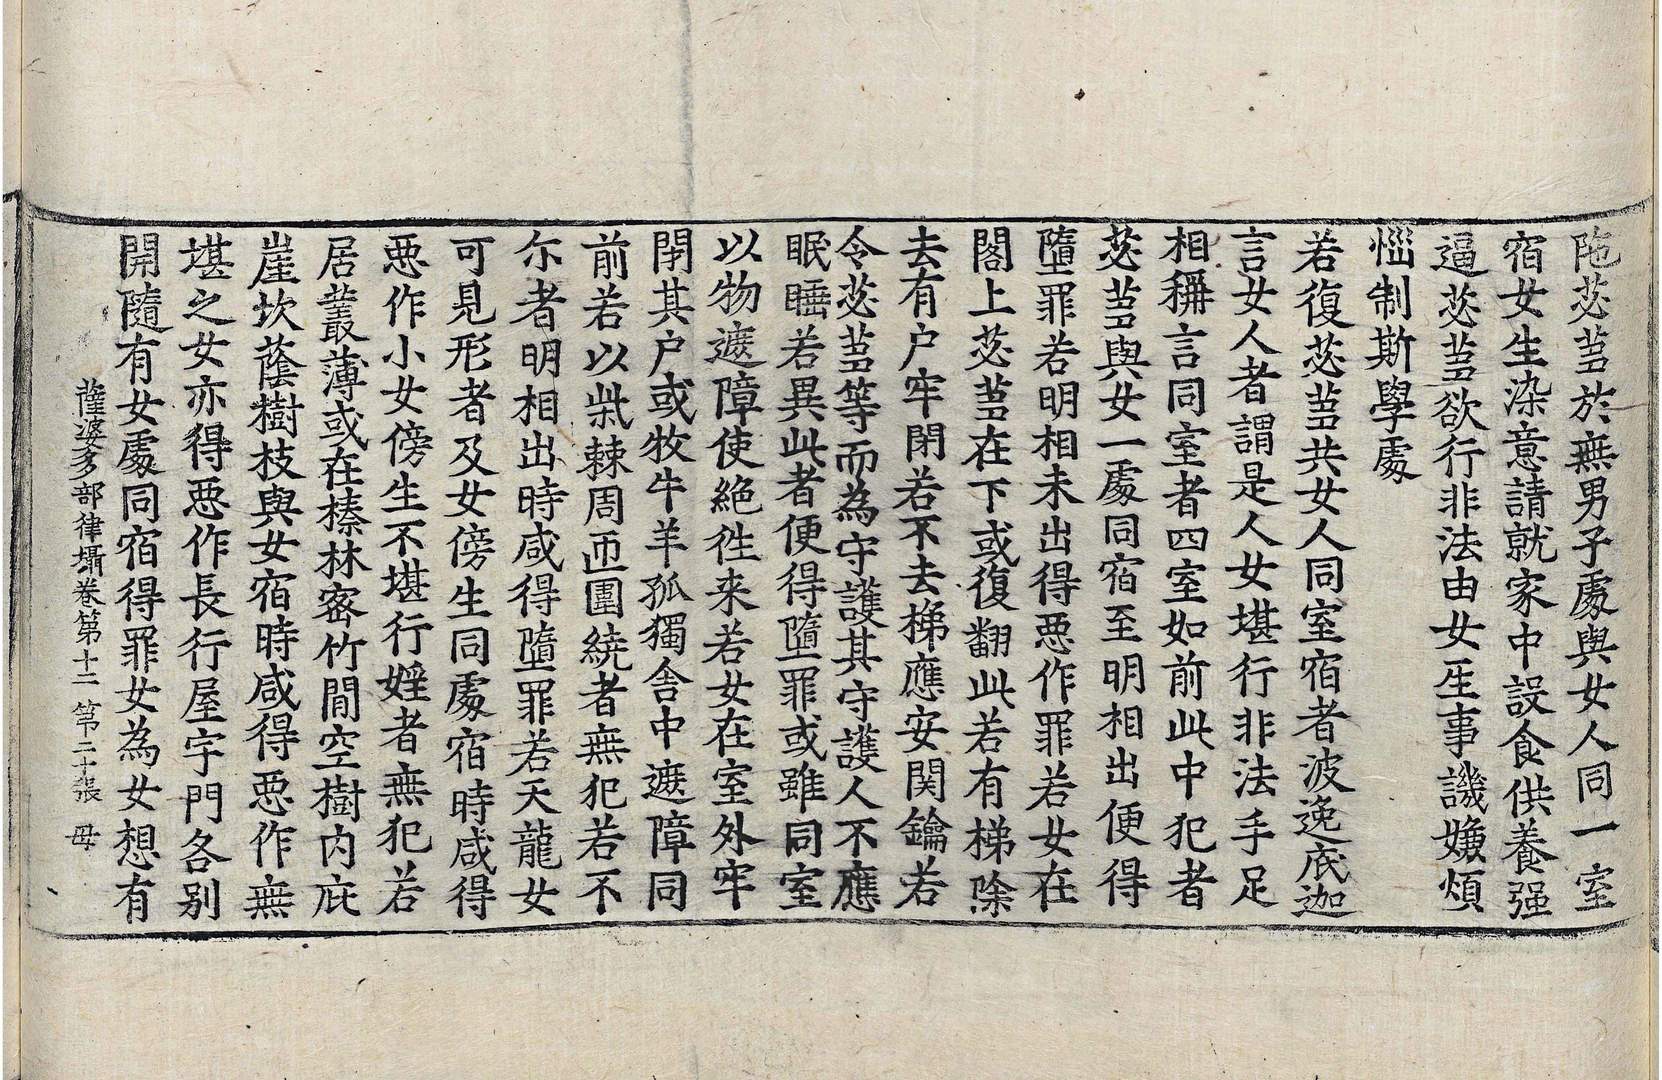 陁苾芻於無男子處與女人同一室
宿女生染意請就家中設食供養强
逼苾芻欲行非法由女生事譏嫌煩
惱制斯學處
若復苾芻共女人同室宿者波逸底迦
言女人者謂是人女堪行非法手足
相稱言同室者四室如前此中犯者
苾芻與女一處同宿至明相出便得
墮罪若明相未出得惡作罪若女在
閣上苾芻在下或復翻此若有梯除
去有户牢閉若不去梯應安関鑰若
令苾芻等而為守護其守護人不應
眠睡若異此者便得墮罪或雖同室
以物遮障使絕徃来若女在室外牢
閉其户或牧牛羊孤獨舍中遮障同
前若以柴棘周帀圍繞者無犯若不
尒者明相出時咸得墮罪若天龍女
可見形者及女傍生同處宿時咸得
惡作小女傍生不堪行婬者無犯若
居叢薄或在榛林宻竹間空樹內庇
崖坎蔭樹枝與女宿時咸得惡作無
堪之女亦得惡作長行屋宇門各别
開隨有女處同宿得罪女為女想有
薩婆多部律攝卷第十二 第二十張 母